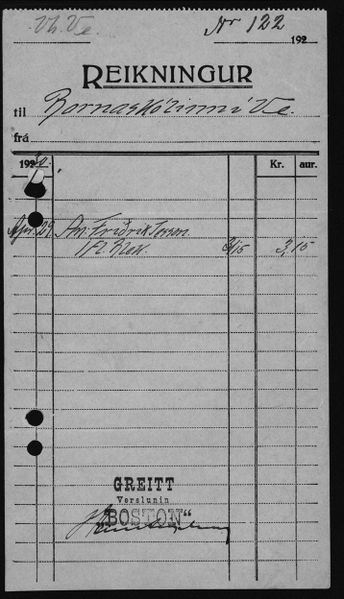 Vh. Ve.
Nr 122
192
REIKNINGUR
til Barnaskólinn í Ve.
frá
1930.
Kr. aur.
Apr. 29 Fridrik
1 Fl. 3/15 3,15
GREITT
Verslunin
"BOSTON"